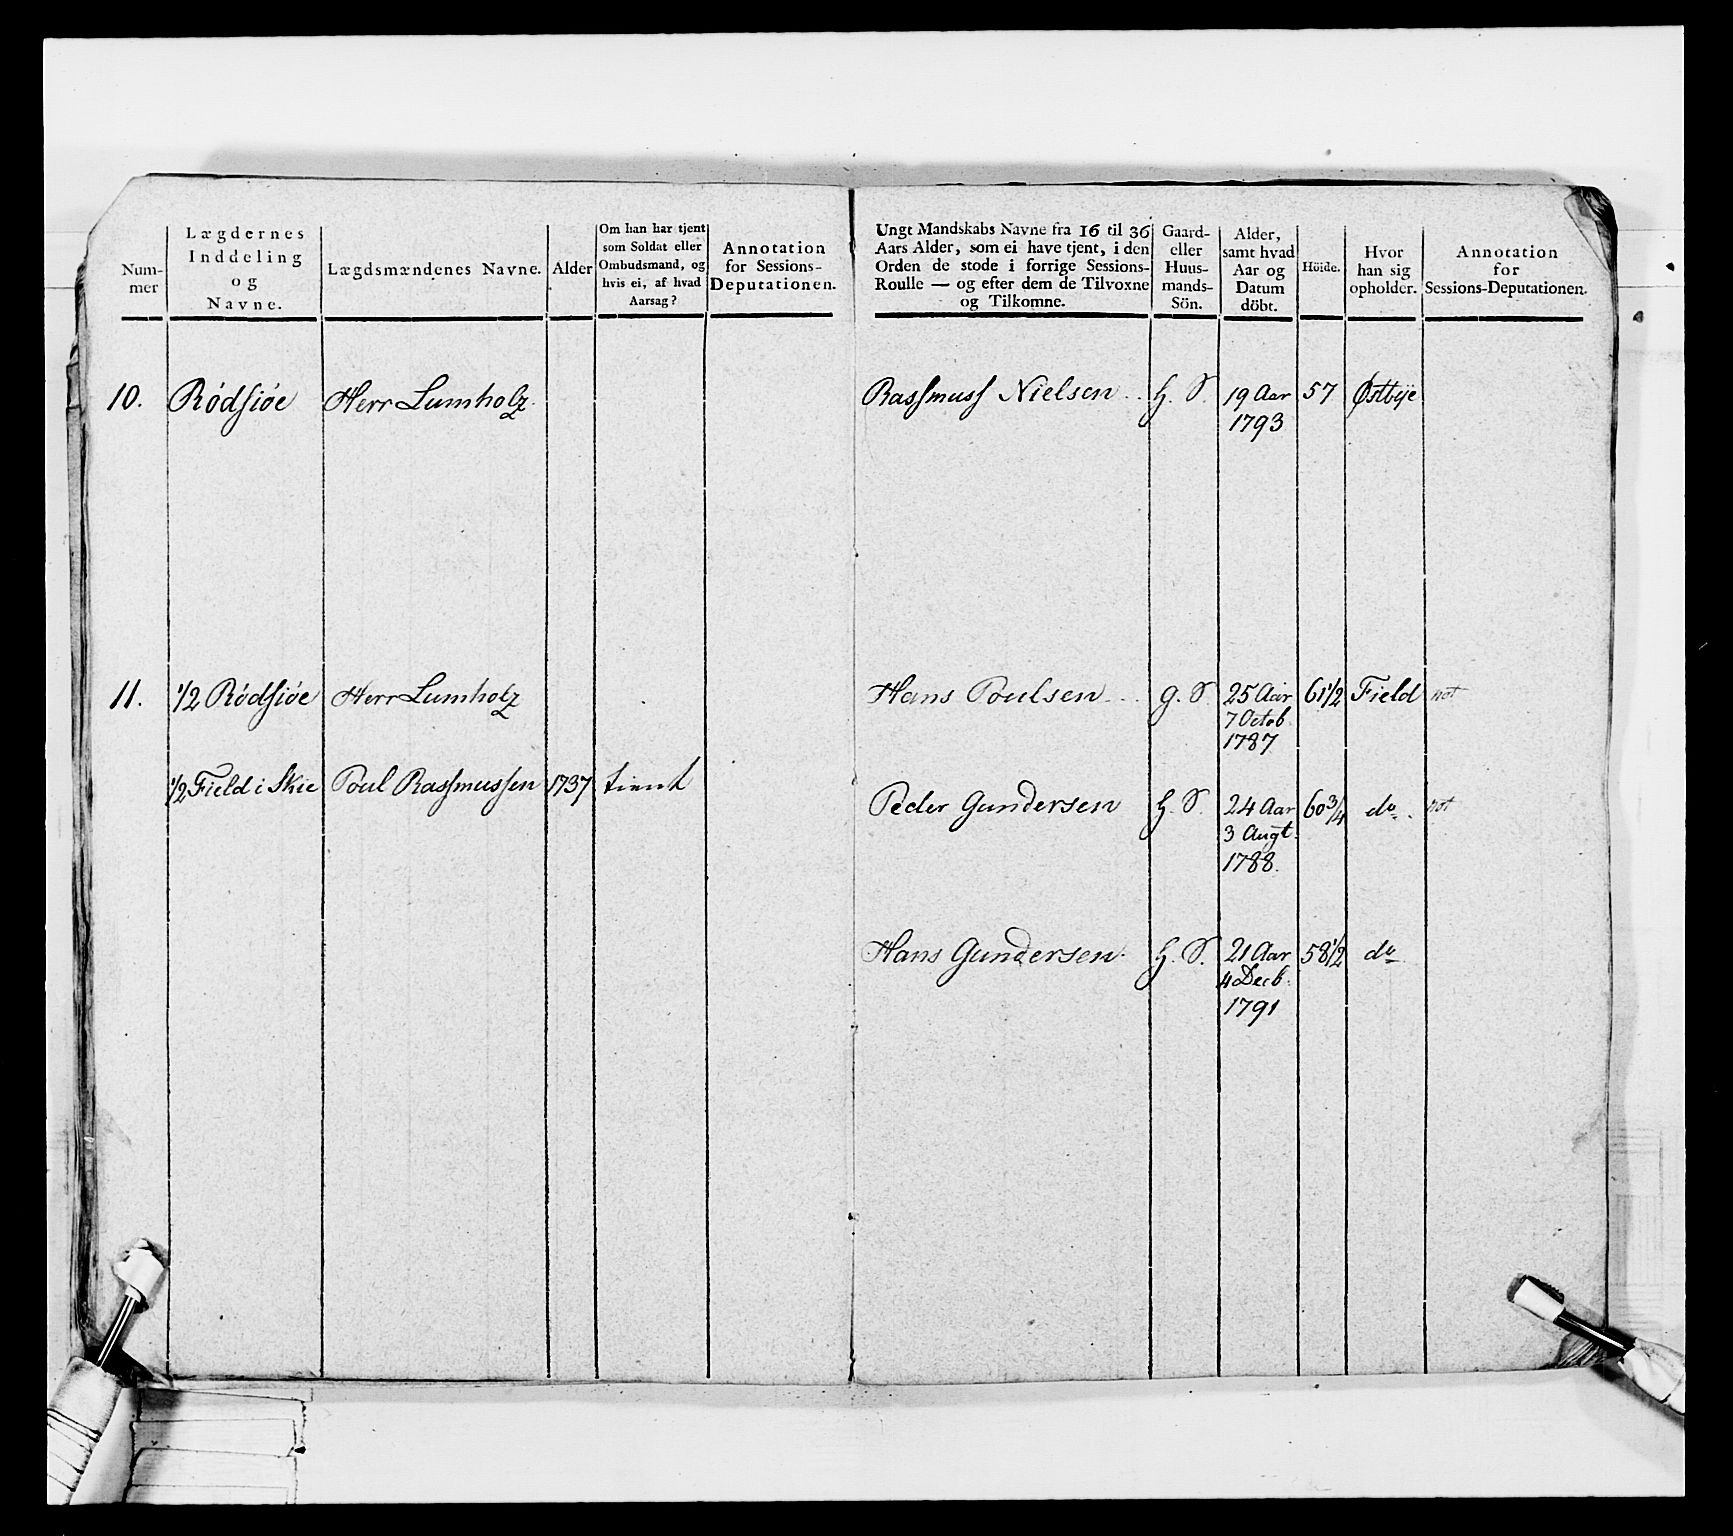 Num-
mer
Lægdernes
Inddeling
og
Navne.
Lægdsmændenes Navne.
Alder
Om han har tjent
som Soldat eller
Ombudsmand, og
hvis ei, af hvad
Aarsag?
Annotation
for Sessions-
Deputationen.
Ungt Mandskabs Navne fra 16 til 36
Aars Alder, som ei have tjent, i den
Orden de stode i forrige Sessions-
Roulle — og efter dem de Tilvoxne
og Tilkomne.
Gaard-
eller
Huus-
mands-
Sön.
Alder,
samt hvad
Aar og
Datum
döbt.
Höide.
Hvor
han sig
opholder.
Annotation
for
Sessions-Deputationen.
10. Rödsiöe Herr Lumholz. Rassmuss Nielsen .. H. S. 19 Aar 57 Østbye
1793
11. 1/2 Rödsiöe Herr Lumholz Hans Poulsen .. G. S. 25 Aar 61 1/2 Field not
7 Octob.
1787
1/2 Field i Skie Poul Rassmussen 1737 tient
Peder Gundersen H. S. 24 Aar 60 3/4 do. not
3 Augt.
1788.
Hans Gundersen. H. S. 21 Aar 58 1/2 do
4 Decb.
1791